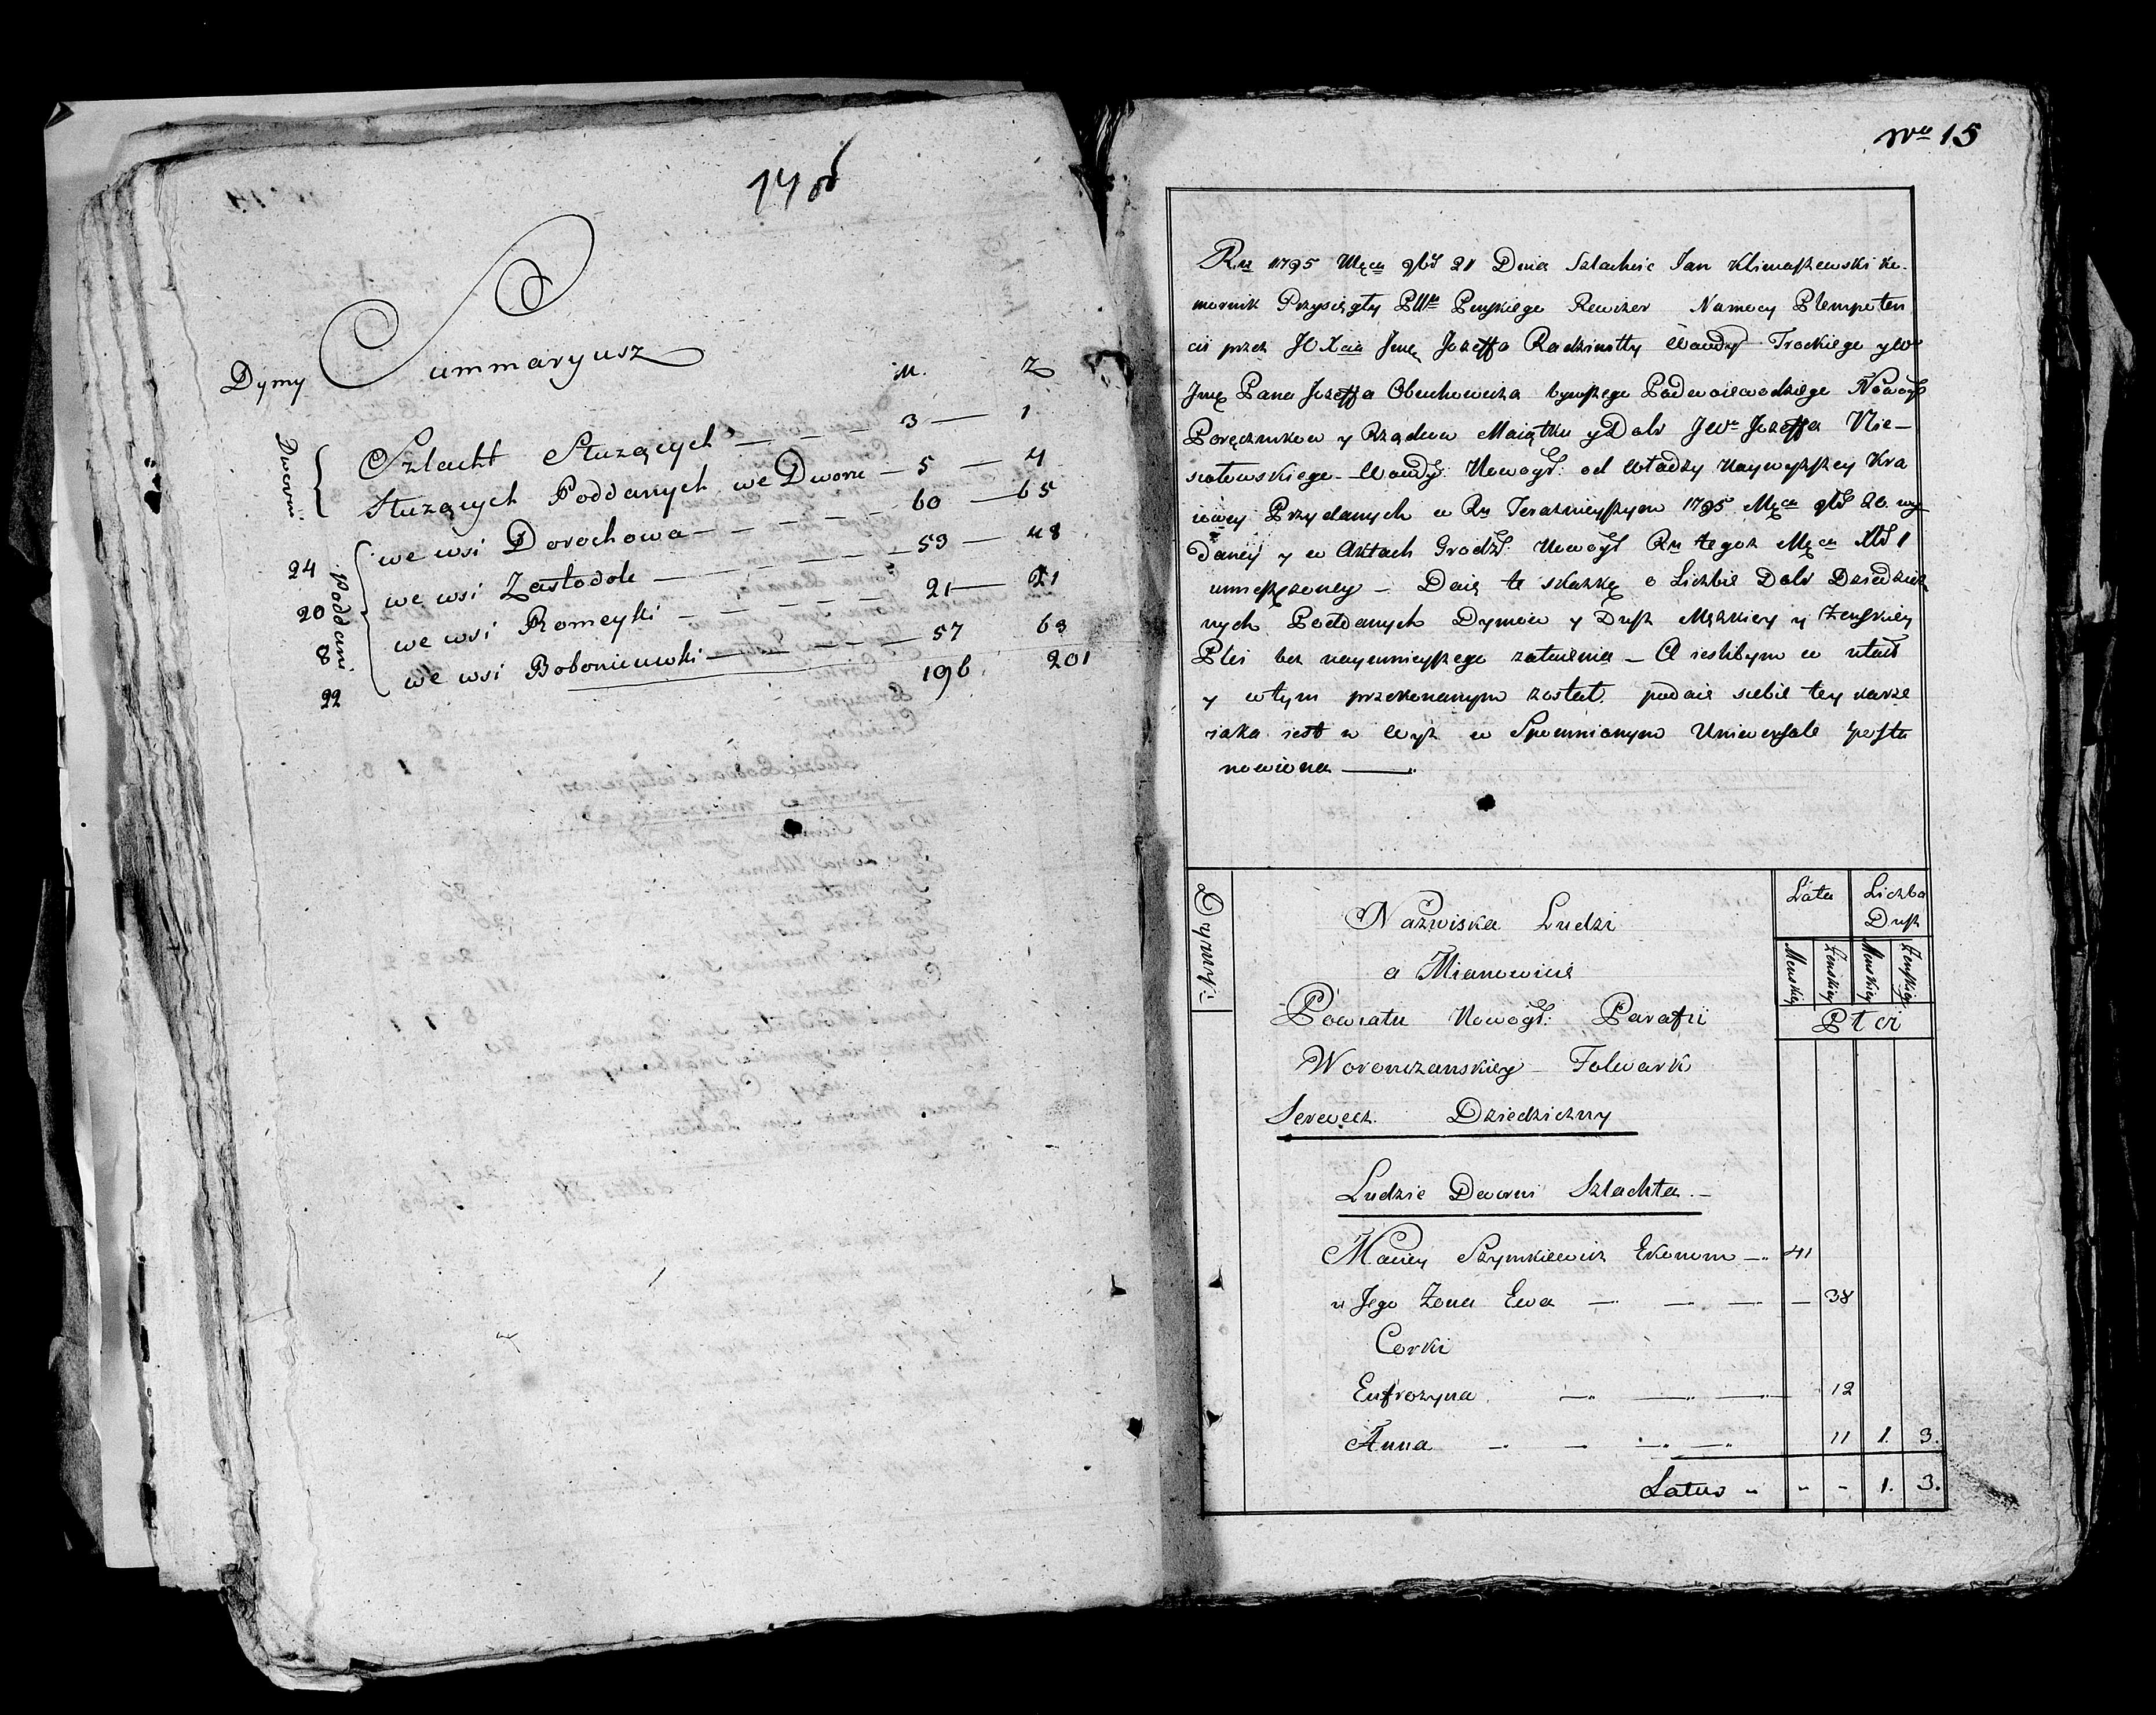 14 об
Summaryusz
Dymy
M. Z
Dworni
Szlacht Służących — 3 — 1
Służących Poddanych we Dworze — 5 — 4
Poddani
24 we wsi Dorochowa — 60 — 65
20 we wsi Zasłodole — 53 — 48
8 we wsi Romeyki — 21 — 21
22 we wsi Boboniewski — 57 63
196 201
Nro 15
Ru 1795 Męca 9bˡ 21 Dnia Szlachcic Jan Klimaszewski Ko-
mornik Przysięgły Pttu Pinskiego Rewizor Namocy Plempoten
cii przez JO Xcia Jmę Jozeffa Radziwiłły Wawdy Trockiego y W
Jmę Pana Jozeffa Obuchowicza bywszego Podwoiewodziego Nowogl
Poręcznikow y Rządcow Maiątku y Dobr JWo Jozeffa Nie-
siołowskiego Wawdy Nowogl: od Władzy Naywyższey Kra
iowey Przydanych w Ru Teraznieyszym 1795 Męca 9bˡ 20 wy
daney y w Aktach Grodzˡ: Nowogl Ru tegoż Męca Xbˡ 1
umieszczoney – Daię te skazkę o Liczbie Dobr Dziedzicz
nych Poddanych Dymow y Dusz Męzkiey y Zenskiey
Płci bez naymnieyszego zataienia – A ieslibym w utaie
y w tym przekonanym został: podaie siebie tey karze
iaka iest w Wyż w Spomnionym Uniwersale posta
nowiona —
Dymy:
Nazwiska Ludzi
a Mianowicie
Powiatu Nowogl: Parafii
Woronczanskiey Folwark
Serwecz. Dziedziczny
Lata Liczba
Dusz
Menskiey Zenskiey Menskiey Zenskiey
Płci
Ludzie Dworni Szlachta. –
Maciey Szymkiewicz Ekonom — 41
u Jego Zona Ewa — — — — 38
Corki
Eufrozyna — — — 12
Anna - - — — 11 1. 3.
Latus „ „ „ 1. 3.